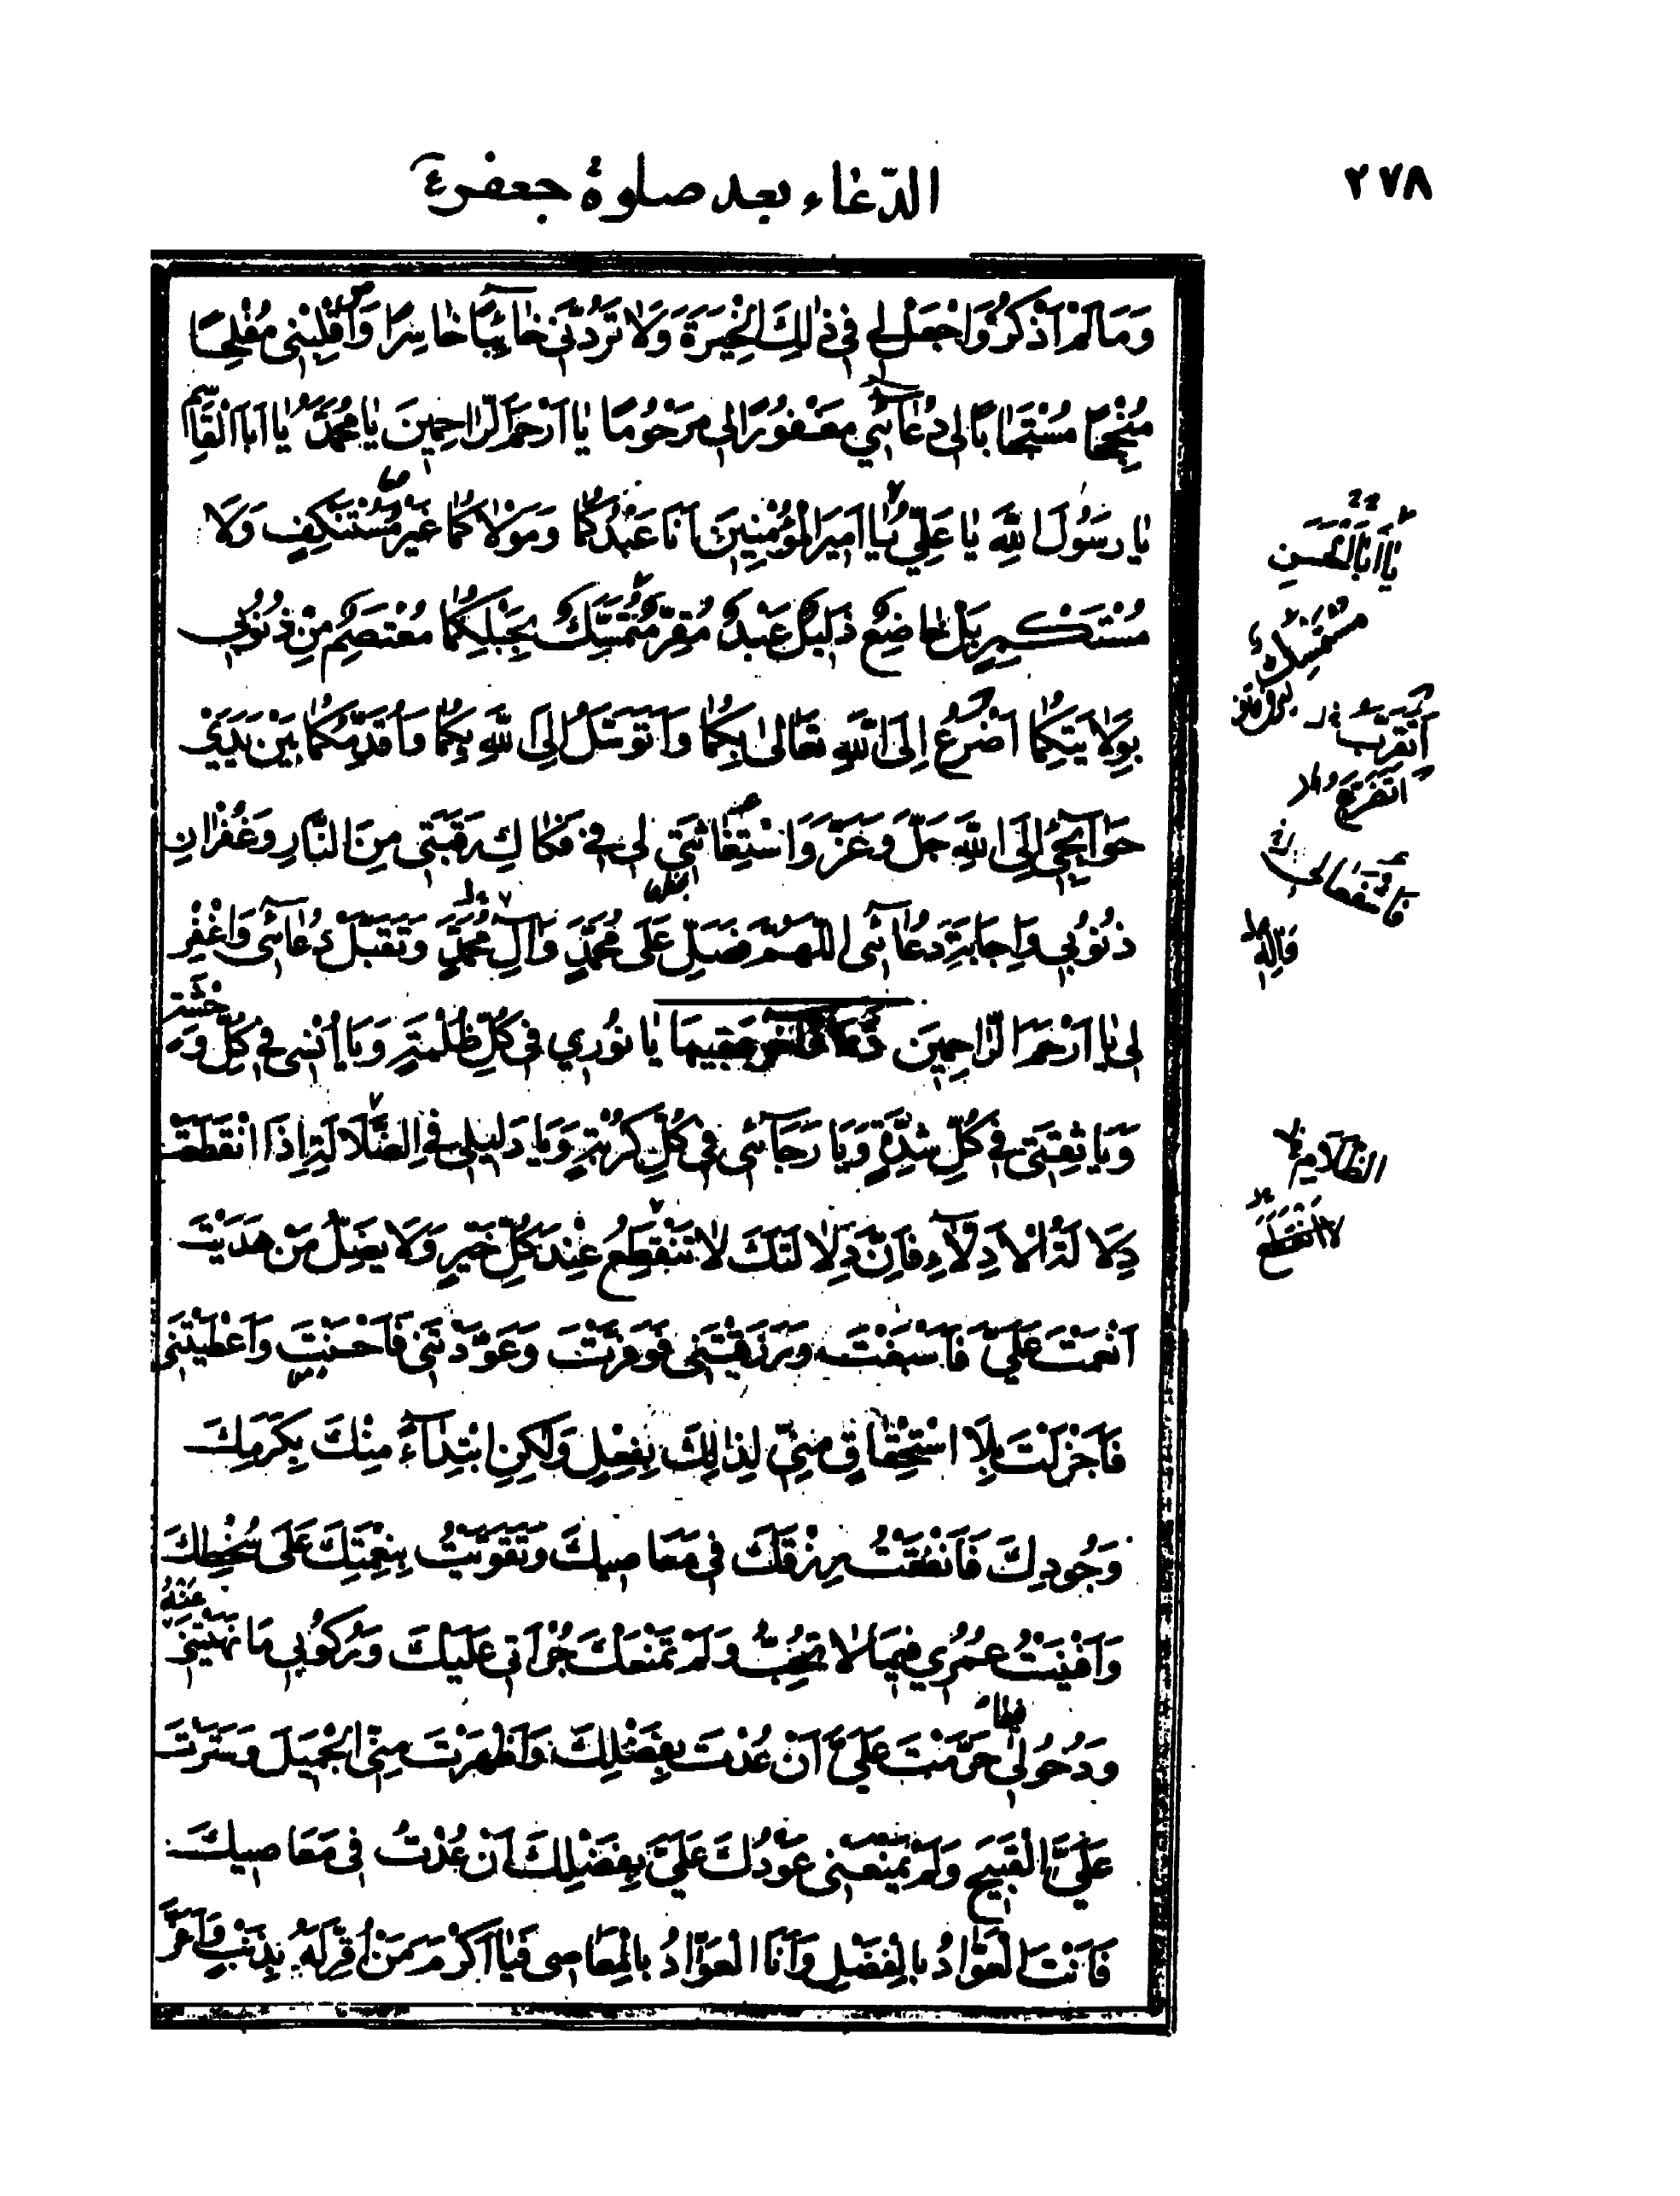 ٢٧٨
الدّعاء بعد صلوة جعفر ع
وَمَا لَمْ اَذْكُرْهُ وَاجْعَلْ لِي فِي ذٰلِكَ الْخِيَرَةَ وَلَا تَرُدَّنِي خٰائِبًا خٰاسِرًا وَاقْلِبْنِي مُفْلِحًا
مُنْجِحًا مُسْتَجٰابًا لِي دُعٰائِي مَغْفُورًا لِي مَرْحُومًا يٰا اَرْحَمَ الرّٰاحِمِينَ يٰا مُحَمَّدُ يٰا اَبَا الْقَاسِمِ
يٰا رَسُولَ اللّٰهِ يٰا عَلِيُّ يٰا اَمِيرَ الْمُؤْمِنِينَ اَنَا عَبْدُكُمٰا وَمَوْلٰاكُمٰا غَيْرُ مُسْتَنْكِفٍ وَلَا
مُسْتَكْبِرٍ بَلْ خٰاضِعٌ ذَلِيلٌ عَبْدٌ مُقِرٌّ مُتَمَسِّكٌ بِحَبْلِكُمٰا مُعْتَصِمٌ مِنْ ذُنُوبِي
بِوِلٰايَتِكُمٰا اَضْرَعُ اِلَى اللّٰهِ تَعٰالىٰ بِكُمٰا وَاَتَوَسَّلُ اِلَى اللّٰهِ بِكُمٰا وَاُقَدِّمُكُمٰا بَيْنَ يَدَيْ
حَوَائِجِي اِلَى اللّٰهِ جَلَّ وَعَزَّ وَاسْتِغٰاثَتِي لِي فِي فَكٰاكِ رَقَبَتِي مِنَ النّٰارِ وَغُفْرٰانِ
ذُنُوبِي وَاِجَابَةِ دُعٰائِي اللّٰهُمَّ فَصَلِّ عَلَى مُحَمَّدٍ وَآلِ مُحَمَّدٍ وَتَقَبَّلْ دُعٰائِي وَاغْفِرْ
لِي يٰا اَرْحَمَ الرّٰاحِمِينَ دُعَاءٌ آخَرُ عَقِيبَهَا يٰا نُورِي فِي كُلِّ ظُلْمَةٍ وَيَا اُنْسِي فِي كُلِّ وَحْشَةٍ
وَيَا ثِقَتِي فِي كُلِّ شِدَّةٍ وَيَا رَجَائِي فِي كُلِّ كُرْبَةٍ وَيَا دَلِيلِي فِي الضَّلَالَةِ اِذَا انْقَطَعَتْ
دِلَالَةُ الْاَدِلّٰاءِ فَاِنَّ دِلٰالَتَكَ لٰا تَنْقَطِعُ عِنْدَ كُلِّ خَيْرٍ وَلَا يَضِلُّ مَنْ هَدَيْتَ
اَنْعَمْتَ عَلَيَّ فَاَسْبَغْتَ وَرَزَقْتَنِي فَوَفَّرْتَ وَعَوَّدْتَنِي فَاَحْسَنْتَ وَاَعْطَيْتَنِي
فَاَجْزَلْتَ بِلَا اسْتِحْقٰاقٍ مِنِّي لِذٰلِكَ بِفِعْلٍ وَلٰكِنِ ابْتِدٰاءً مِنْكَ بِكَرَمِكَ
وَجُودِكَ فَاَنْفَقْتُ رِزْقَكَ فِي مَعَاصِيكَ وَتَقَوَّيْتُ بِنِعْمَتِكَ عَلَى سَخَطِكَ
وَاَفْنَيْتُ عُمُرِي فِيمَا لٰا تُحِبُّ وَلَمْ تَمْنَعْكَ جُرْاَتِي عَلَيْكَ وَرُكُوبِي مَا نَهَيْتَنِي عَنْهُ
وَدُخُولِي حَرَّمْتَ عَلَيَّ اَنْ عُدْتَ بِفَضْلِكَ وَاَظْهَرْتَ مِنِّي الْجَمِيلَ وَسَتَرْتَ
عَلَيَّ الْقَبِيحَ وَلَمْ يَمْنَعْنِي عَوْدُكَ عَلَيَّ بِفَضْلِكَ اَنْ عُدْتُ فِي مَعَاصِيكَ
فَاَنْتَ الْعَوّٰادُ بِالْفَضْلِ وَاَنَا الْعَوّٰادُ بِالْمَعٰاصِي فَيٰا اَكْرَمَ مَنْ اُقِرَّ لَهُ بِذَنْبٍ وَاَعَزَّ
يٰا اَبَا الْحَسَنِ
مُسْتَمْسِكٌ
اَتَقَرَّبُ
اَتَضَرَّعُ
فَاشْفَعَا لِي
وَآلِهِ
الظَّلَامِ
لَا انْقَطَعَ